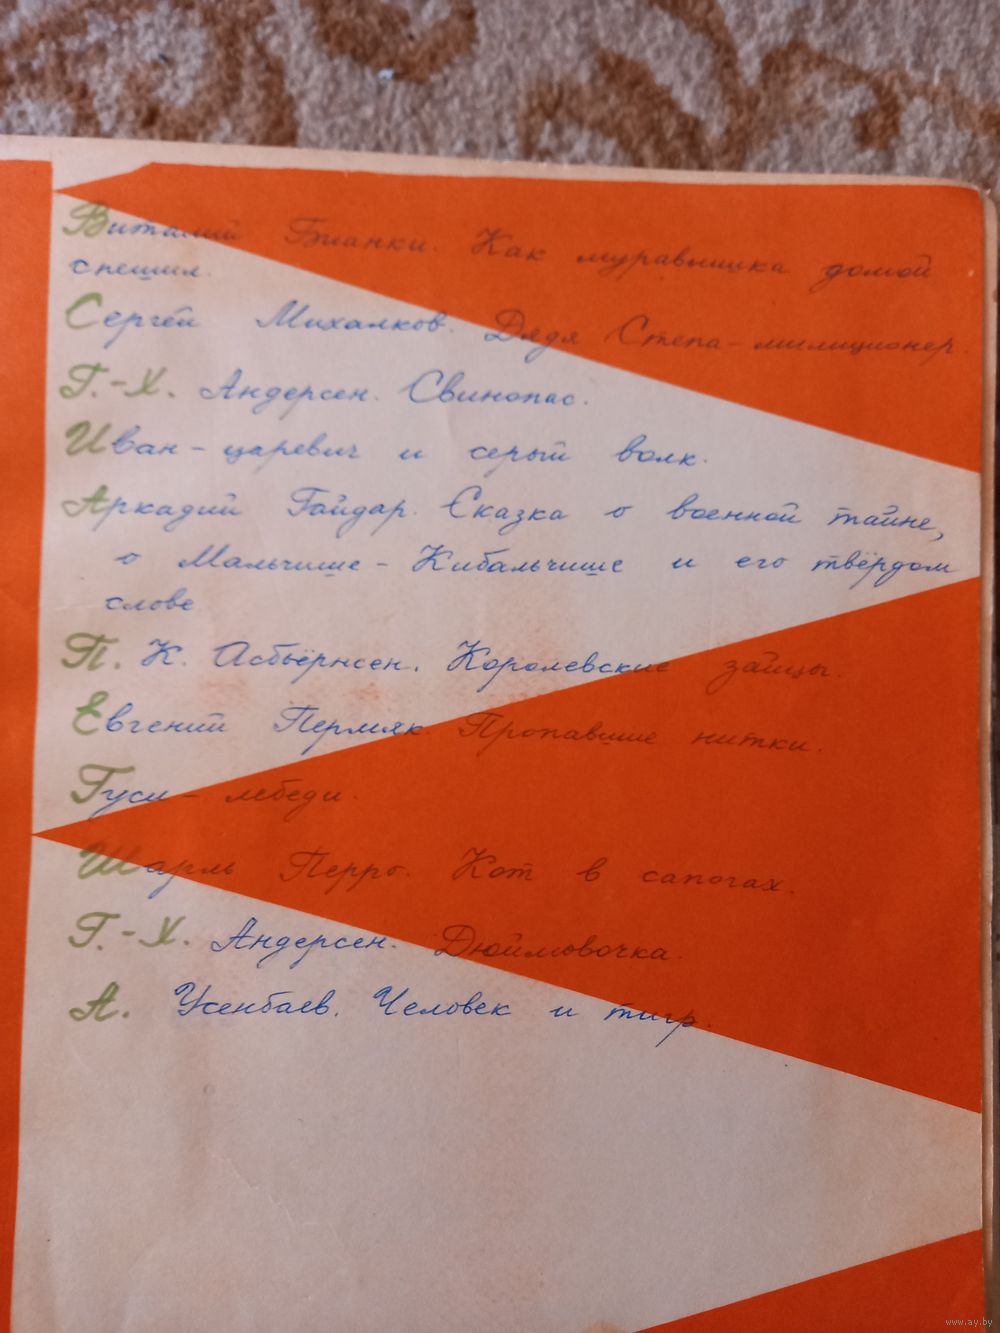 Виталий Бианки. Как муравьишка домой
спешил.
Сергей Михалков. Дядя Степа-милиционер.
Г.-Х. Андерсен. Свинопас.
Иван-царевич и серый волк.
Аркадий Гайдар. Сказка о военной тайне,
о Мальчише-Кибальчише и его твёрдом
слове.
П. К. Асбьёрнсен. Королевские зайцы.
Евгений Пермяк. Пропавшие нитки.
Гуси-лебеди.
Шарль Перро. Кот в сапогах.
Г.-Х. Андерсен. Дюймовочка.
А. Усенбаев. Человек и тигр.
www.ay.by